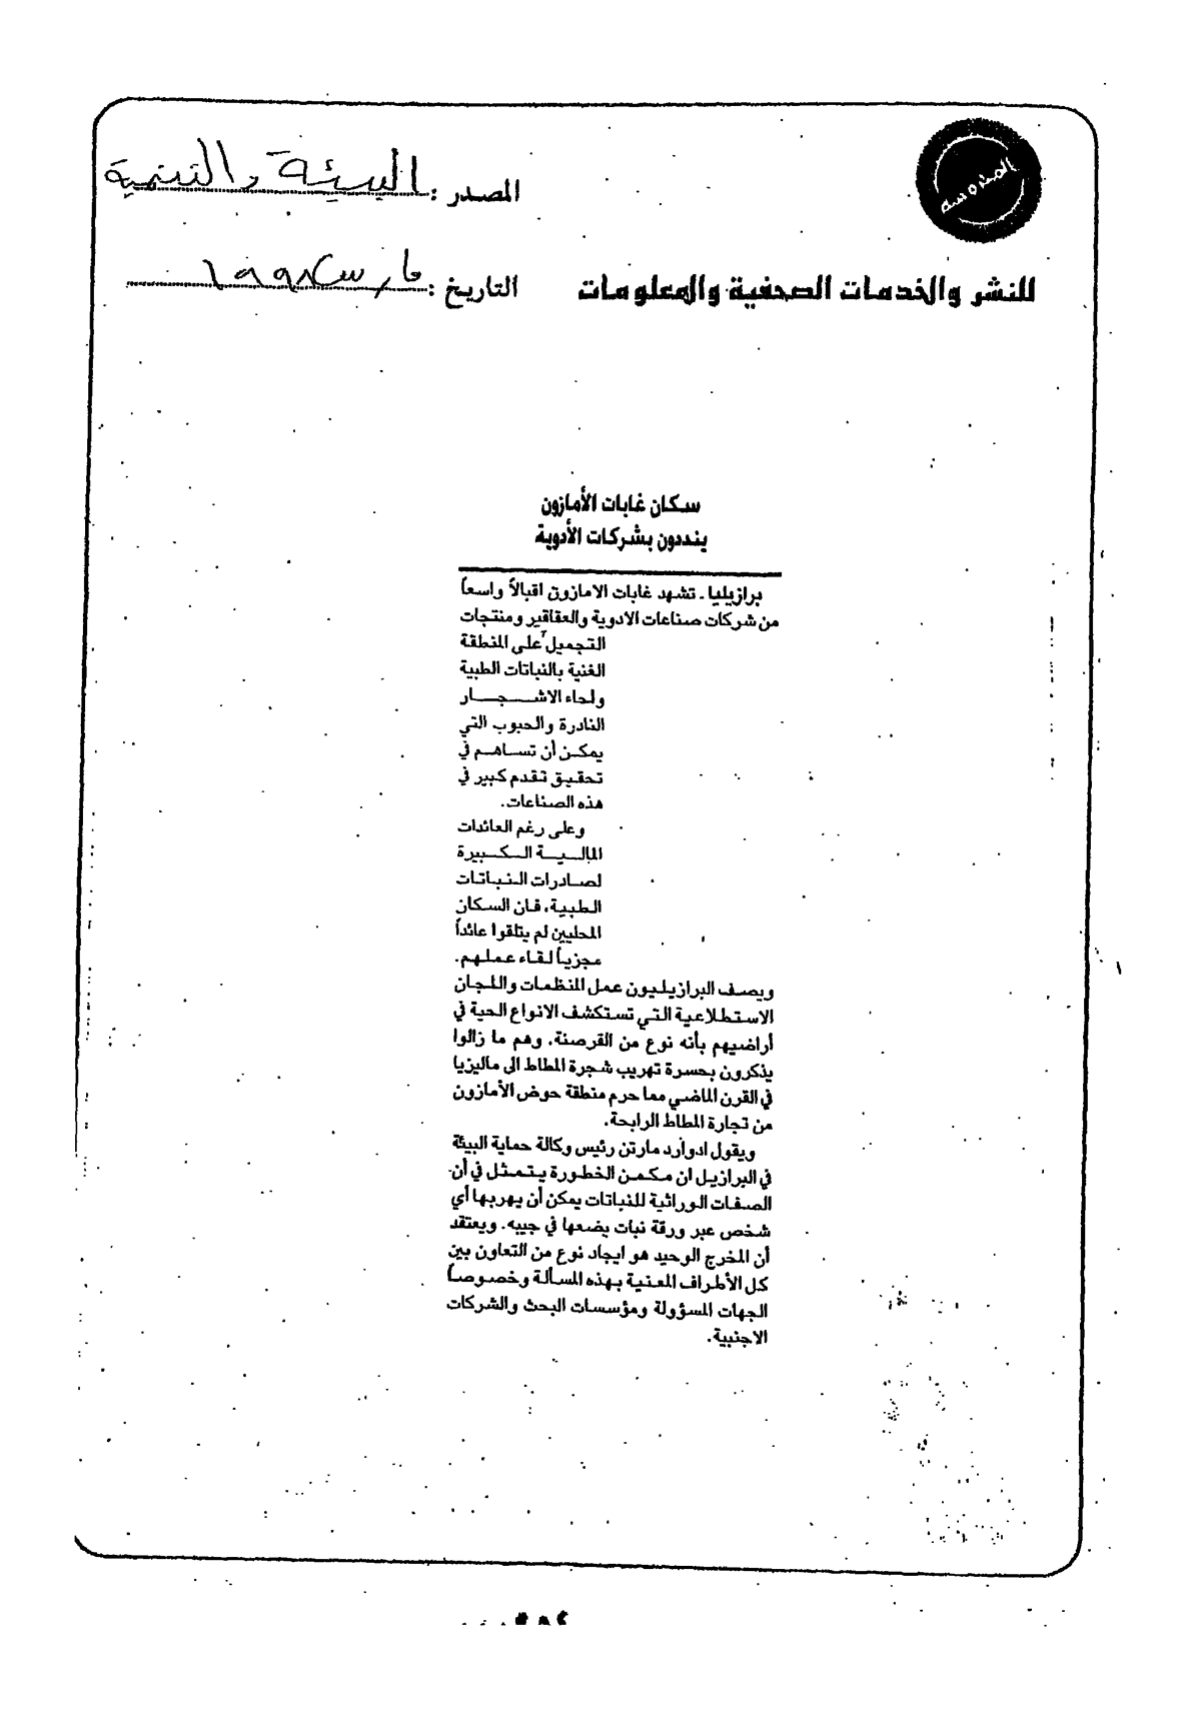 المصدر : البيئة والتنمية
المحروسة
للنشر والخدمات الصحفية والمعلومات
التاريخ : مارس ١٩٩٨
سكان غابات الأمازون
ينددون بشركات الأدوية
برازيليا ـ تشهد غابات الامازون اقبالاً واسعاً
من شركات صناعات الادوية والعقاقير ومنتجات
التجميل على المنطقة
الغنية بالنباتات الطبية
ولحاء الاشجار
النادرة والحبوب التي
يمكن أن تساهم في
تحقيق تقدم كبير في
هذه الصناعات.
وعلى رغم العائدات
المالية الكبيرة
لصادرات النباتات
الطبية، فان السكان
المحليين لم يتلقوا عائداً
مجزياً لقاء عملهم.
ويصف البرازيليون عمل المنظمات واللجان
الاستطلاعية التي تستكشف الانواع الحية في
أراضيهم بأنه نوع من القرصنة. وهم ما زالوا
يذكرون بحسرة تهريب شجرة المطاط الى ماليزيا
في القرن الماضي مما حرم منطقة حوض الأمازون
من تجارة المطاط الرابحة.
ويقول ادوارد مارتن رئيس وكالة حماية البيئة
في البرازيل ان مكمن الخطورة يتمثل في أن
الصفات الوراثية للنباتات يمكن أن يهربها أي
شخص عبر ورقة نبات يضعها في جيبه. ويعتقد
أن المخرج الوحيد هو ايجاد نوع من التعاون بين
كل الأطراف المعنية بهذه المسألة وخصوصاً
الجهات المسؤولة ومؤسسات البحث والشركات
الاجنبية.